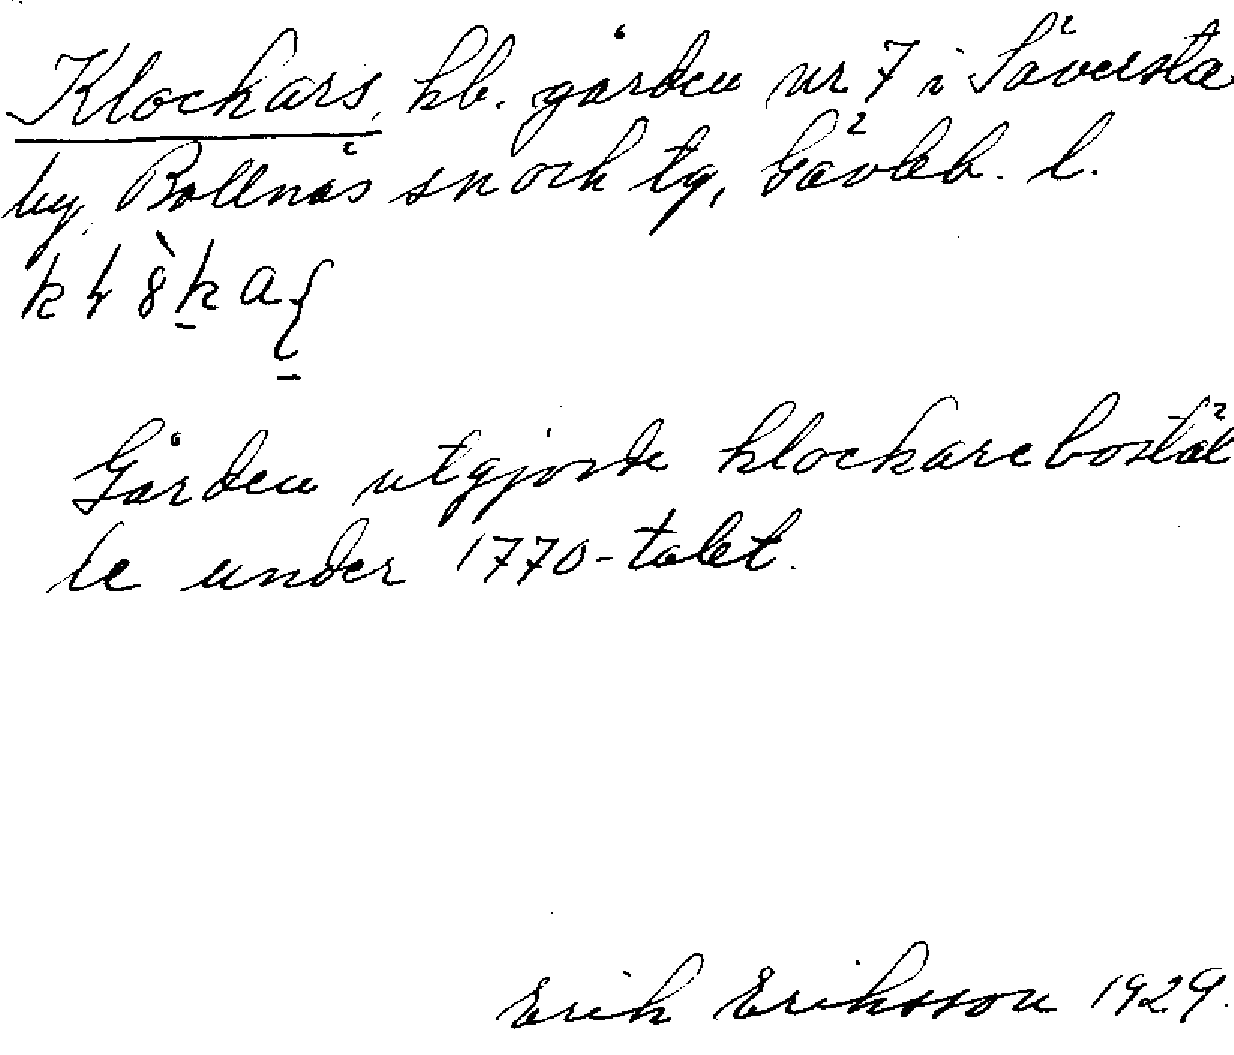 Klockars, hb. gården nr 7 i Säversta
by, Bollnäs sn och tg, Gävleb. l.
Gården utgjorde klockareboställ
le under 1770-talet.
Erik Eriksson 1929.